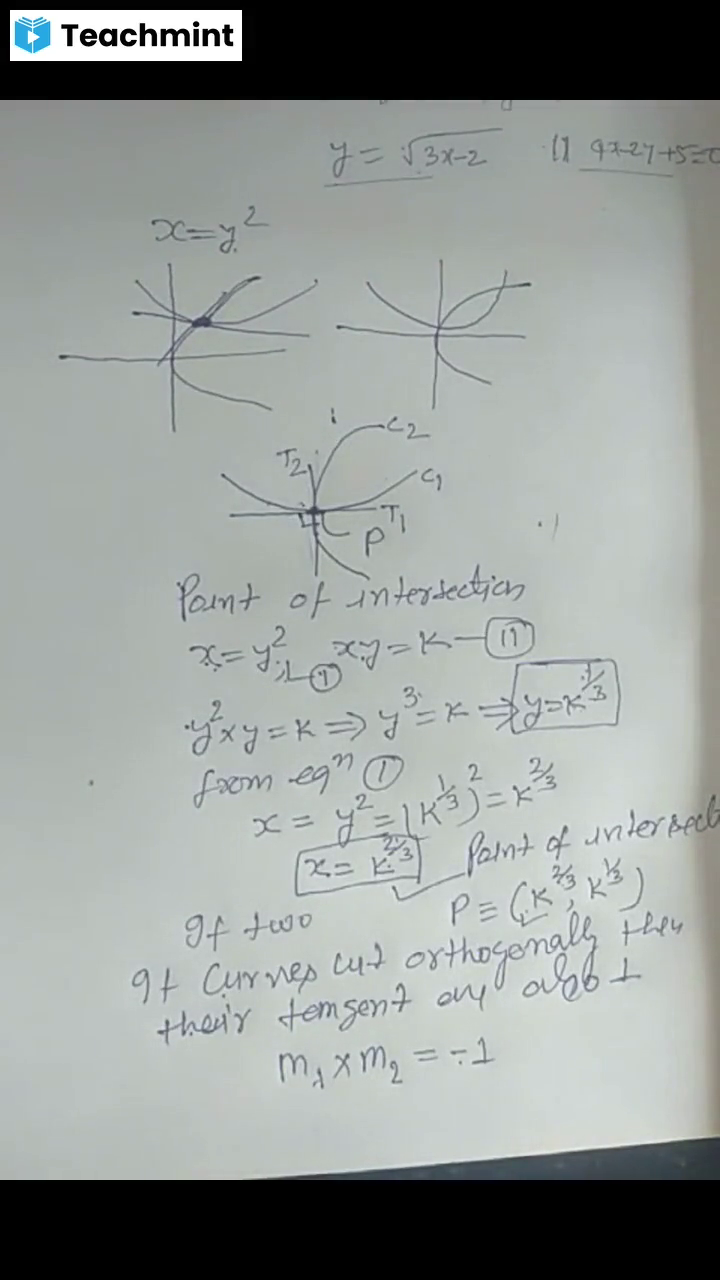 Teachmint
y = √3x-2 11 4x-2y+5=0
x=y²
C2
T2
C1
T1
P
Point of intersection
x=y² ;—① xy=k—⑪
y²xy=k⇒y³=k⇒y=k^1/3
from eqⁿ ①
x = y²=(k^1/3)²=k^2/3
x=k^2/3 Point of intersect
P≡(k^2/3, k^1/3)
If two
If Curves cut orthogonally then
their temgent are also ⊥
m₁×m₂=-1